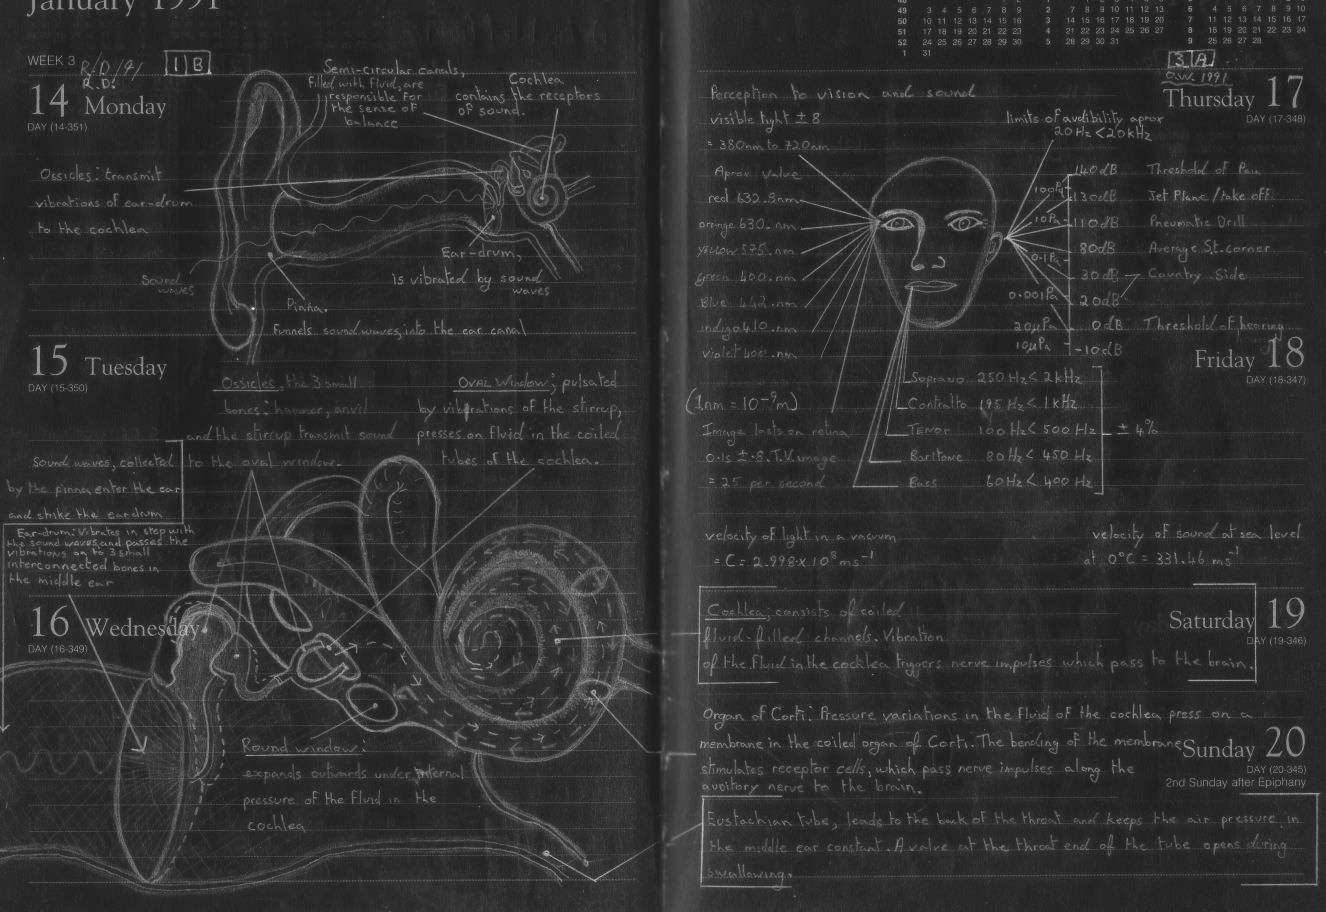 January 1991
WEEK 3 R/D/91 1 B
R.D!
14 Monday
DAY (14-351)
Semi-circular canals,
Filled with fluid, are
responsible for
the sense of
balance
Cochlea
contains the receptors
of sound.
Ossicles: transmit
vibrations of ear-drum
to the cochlea
Sound
waves
Ear-drum,
is vibrated by sound
waves
Pinna.
Funnels sound waves, into the ear canal
15 Tuesday
DAY (15-350)
Ossicles, the 3 small
bones: hammer, anvil
and the stirrup transmit sound
to the oval window.
OVAL Window; pulsated
by vibrations of the stirrup,
presses on fluid in the coiled
tubes of the cochlea.
Sound waves, collected
by the pinna, enter the ear
and strike the eardrum
Ear-drum: Vibrates in step with
the sound waves, and passes the
vibrations on to 3 small
interconnected bones in
the middle ear
16 Wednesday
DAY (16-349)
Round window:
expands outwards under internal
pressure of the fluid in the
cochlea
49 3 4 5 6 7 8 9
50 10 11 12 13 14 15 16
51 17 18 19 20 21 22 23
52 24 25 26 27 28 29 30
1 31
2 7 8 9 10 11 12 13
3 14 15 16 17 18 19 20
4 21 22 23 24 25 26 27
5 28 29 30 31
6 4 5 6 7 8 9 10
7 11 12 13 14 15 16 17
8 18 19 20 21 22 23 24
9 25 26 27 28
3 A
O.W. 1991
Thursday 17
DAY (17-348)
Perception to vision and sound
visible light ± 8
= 380nm to 720nm
Aprox Value
red 632.8nm
orange 630. nm
yellow 575. nm
green 400. nm
Blue 442. nm
indigo 410. nm
violet 400. nm
(1nm = 10⁻⁹m)
Image lasts on retina
0.1s ± .8. T.V. image
= 25 per second
limits of audibility aprox
20Hz < 20kHz
140dB Threshold of Pain
100Pa 130dB Jet Plane / take off.
10Pa 110dB Pneumatic Drill
80dB Average St. corner
0.1Pa 30dB Country Side
0.001Pa 20dB
20µPa 0dB Threshold of hearing
10µPa -10dB
Friday 18
DAY (18-347)
Soprano 250 Hz < 2kHz
Contralto 195 Hz < 1kHz
Tenor 100 Hz < 500 Hz ± 4%
Baritone 80 Hz < 450 Hz
Bass 60Hz < 400 Hz
velocity of light in a vacuum
= C = 2.998 x 10⁸ ms⁻¹
velocity of sound at sea level
at 0°C = 331.46 ms⁻¹
Saturday 19
DAY (19-346)
Cochlea; consists of coiled
fluid-filled channels. Vibration
of the fluid in the cochlea tryggers nerve impulses which pass to the brain.
Organ of Corti: Pressure variations in the fluid of the cochlea press on a
membrane in the coiled organ of Corti. The bending of the membrane
stimulates receptor cells, which pass nerve impulses along the
auditory nerve to the brain.
Sunday 20
DAY (20-345)
2nd Sunday after Epiphany
Eustachian tube, leads to the back of the throat and keeps the air pressure in
the middle ear constant. A valve at the throat end of the tube opens during
swallowing.